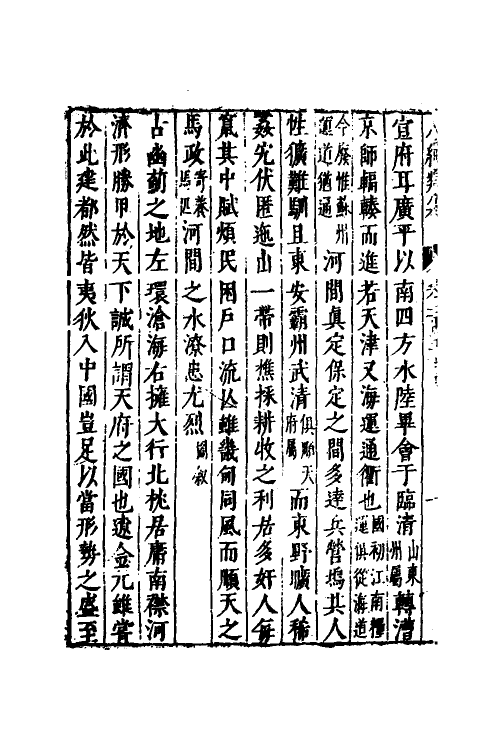 宣府耳廣平以南四方水陸畢會于臨清山東州屬轉漕
京師輻輳而進若天津又海運通衢也國初江南糧運俱從海道
今廢惟蘇州運道猶通河間真定保定之間多達兵營塢其人
性獷難馴且東安霸州武清俱順天府屬而東野曠人稀
姦宄伏匿迤山一帶則樵採耕收之利居多奸人每
竄其中賦煩民困戶口流亾雖畿甸同風而順天之
馬政寄養馬匹河間之水潦患尤烈圖敘
古幽薊之地左環滄海右擁大行北枕居庸南襟河
濟形勝甲於天下誠所謂天府之國也遼金元雖嘗
於此建都然皆夷狄入中國豈足以當形勢之盛至